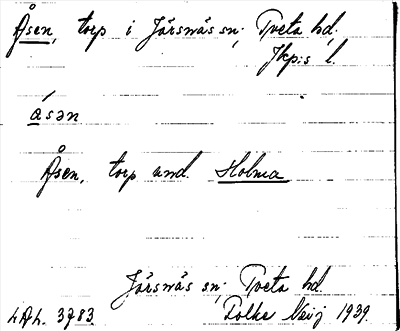 Åsen, torp i Järsnäs sn; Tveta hd.
Jkp:s l.
åsən
Åsen, torp und. Holma
Järsnäs sn; Tveta hd.
LAL. 3783. Folke 1939.